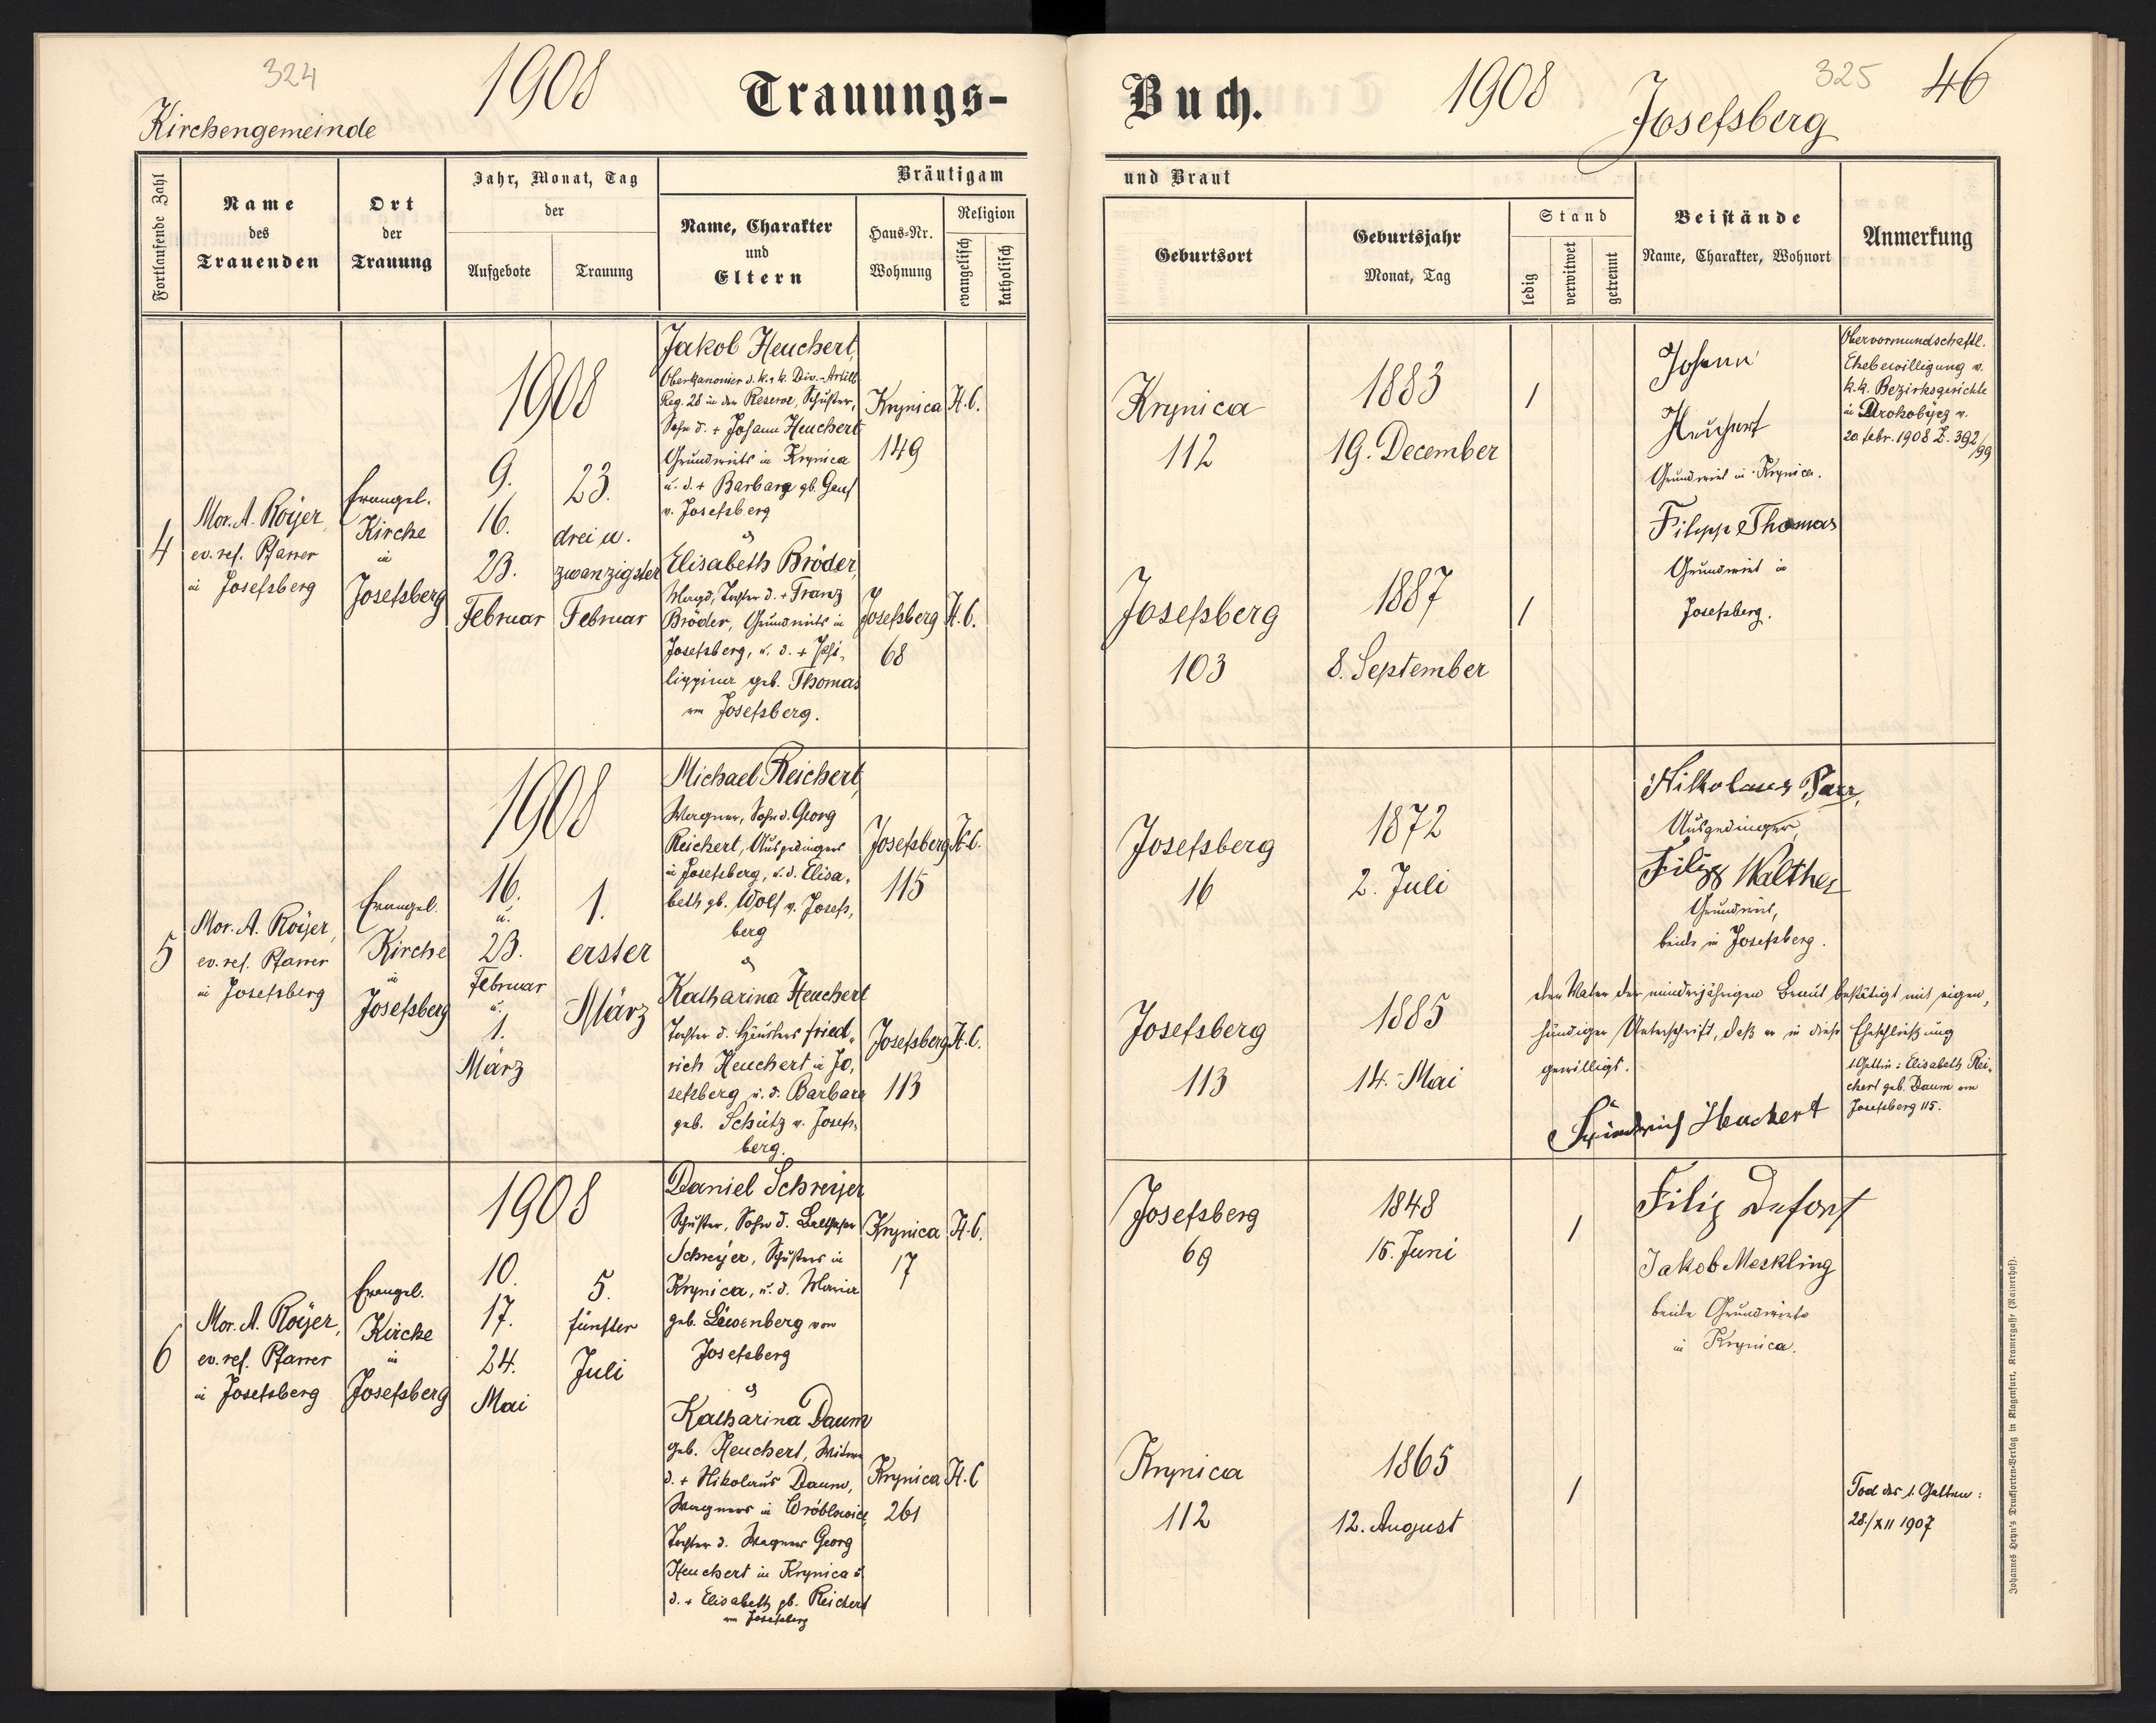 324
1908
Trauungs-
Kirchengemeinde
Fortlaufende Zahl
Name
des
Trauenden
Ort
der
Trauung
Jahr, Monat, Tag
der
Aufgebote
Trauung
Bräutigam
Name, Charakter
und
Eltern
Haus-Nr.
Wohnung
Religion
evangelisch
katholisch
4
Mor. A. Royer,
ev. ref. Pfarrer
in Josefsberg
Evangel.
Kirche
in
Josefsberg
1908
9.
16.
23.
Februar
23.
drei u.
zwanzigster
Februar
Jakob Heuchert,
Oberkanonier d. k. u. k. Div.-Artill.
Reg. 28 in der Reserve, Schuster,
Sohn d. + Johann Heuchert
Grundwirts in Krynica
u. d. + Barbara gb. Gauf
v. Josefsberg
&
Elisabeth Bröder,
Magd, Tochter d. + Franz
Bröder, Grundwirts in
Josefsberg, u. d. + Phi-
lippina geb. Thomas
von Josefsberg.
Krynica
149
H. C.
Josefsberg
68
H. C.
5
Mor. A. Royer,
ev. ref. Pfarrer
in Josefsberg
Evangel.
Kirche
in
Josefsberg
1908
16.
u.
23.
Februar
u.
1.
März
1.
erster
März
Michael Reichert,
Wagner, Sohn d. Georg
Reichert, Ausgedingers
in Josefsberg, u. d. Elisa-
beth gb. Wolf v. Josefs-
berg
&
Katharina Heuchert
Tochter d. Häuslers Fried-
rich Heuchert in Jo-
sefsberg u. d. Barbara
geb. Schütz v. Josefs-
berg.
Josefsberg
115
H. C.
Josefsberg
113
H. C.
6
Mor. A. Royer,
ev. ref. Pfarrer
in Josefsberg
Evangel.
Kirche
in
Josefsberg
1908
10.
17.
24.
Mai
5.
fünfter
Juli
Daniel Schreyer
Schuster, Sohn d. Balthasar
Schreyer, Schusters in
Krynica, u. d. Maria
geb. Löwenberg von
Josefsberg
&
Katharina Daum
geb. Heuchert, Witwe
d. + Nikolaus Daum,
Wagners in Wróblowice,
Tochter d. Wagners Georg
Heuchert in Krynica u.
d. + Elisabeth gb. Reichert
von Josefsberg
Krynica
17
H. C.
Krynica
261
H. C.
Buch.
1908
325
46
Josefsberg
und Braut
Geburtsort
Geburtsjahr
Monat, Tag
Stand
ledig
verwitwet
getrennt
Beistände
Name, Charakter, Wohnort
Anmerkung
Krynica
112
1883
19. December
1
Josefsberg
103
1887
8. September
1
Johann
Heuchert
Grundwirt in Krynica.
Filipp Thomas
Grundwirt in
Josefsberg.
Obervormundschaftl.
Ehebewilligung v.
k.k. Bezirksgerichte
in Drohobycz v.
20. Febr. 1908 Z. 392/99
Josefsberg
16
1872
2. Juli
Josefsberg
113
1885
14. Mai
Nikolaus Parr,
Ausgedinger,
Filipp Walther
Grundwirt,
beide in Josefsberg.
Der Vater der minderjährigen Braut bestätigt mit eigen-
händiger Unterschrift, daß er in diese Eheschließung
gewilligt.
Friedrich Heuchert
1. Gattin: Elisabeth Rei-
chert geb. Daum von
Josefsberg 115.
Josefsberg
69
1848
15. Juni
1
Krynica
112
1865
12. August
1
Filip
Jakob Meckling
beide Grundwirte
in Krynica.
Tod des 1. Gatten:
28./XII 1907
Johannes Heyn's Drucksorten-Verlag in Klagenfurt, Kramergasse (Rainerhof).